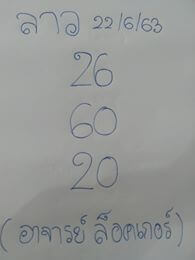 ลาว 22/6/63
26
60
20
(อาจารย์ ล็อคเกอร์)